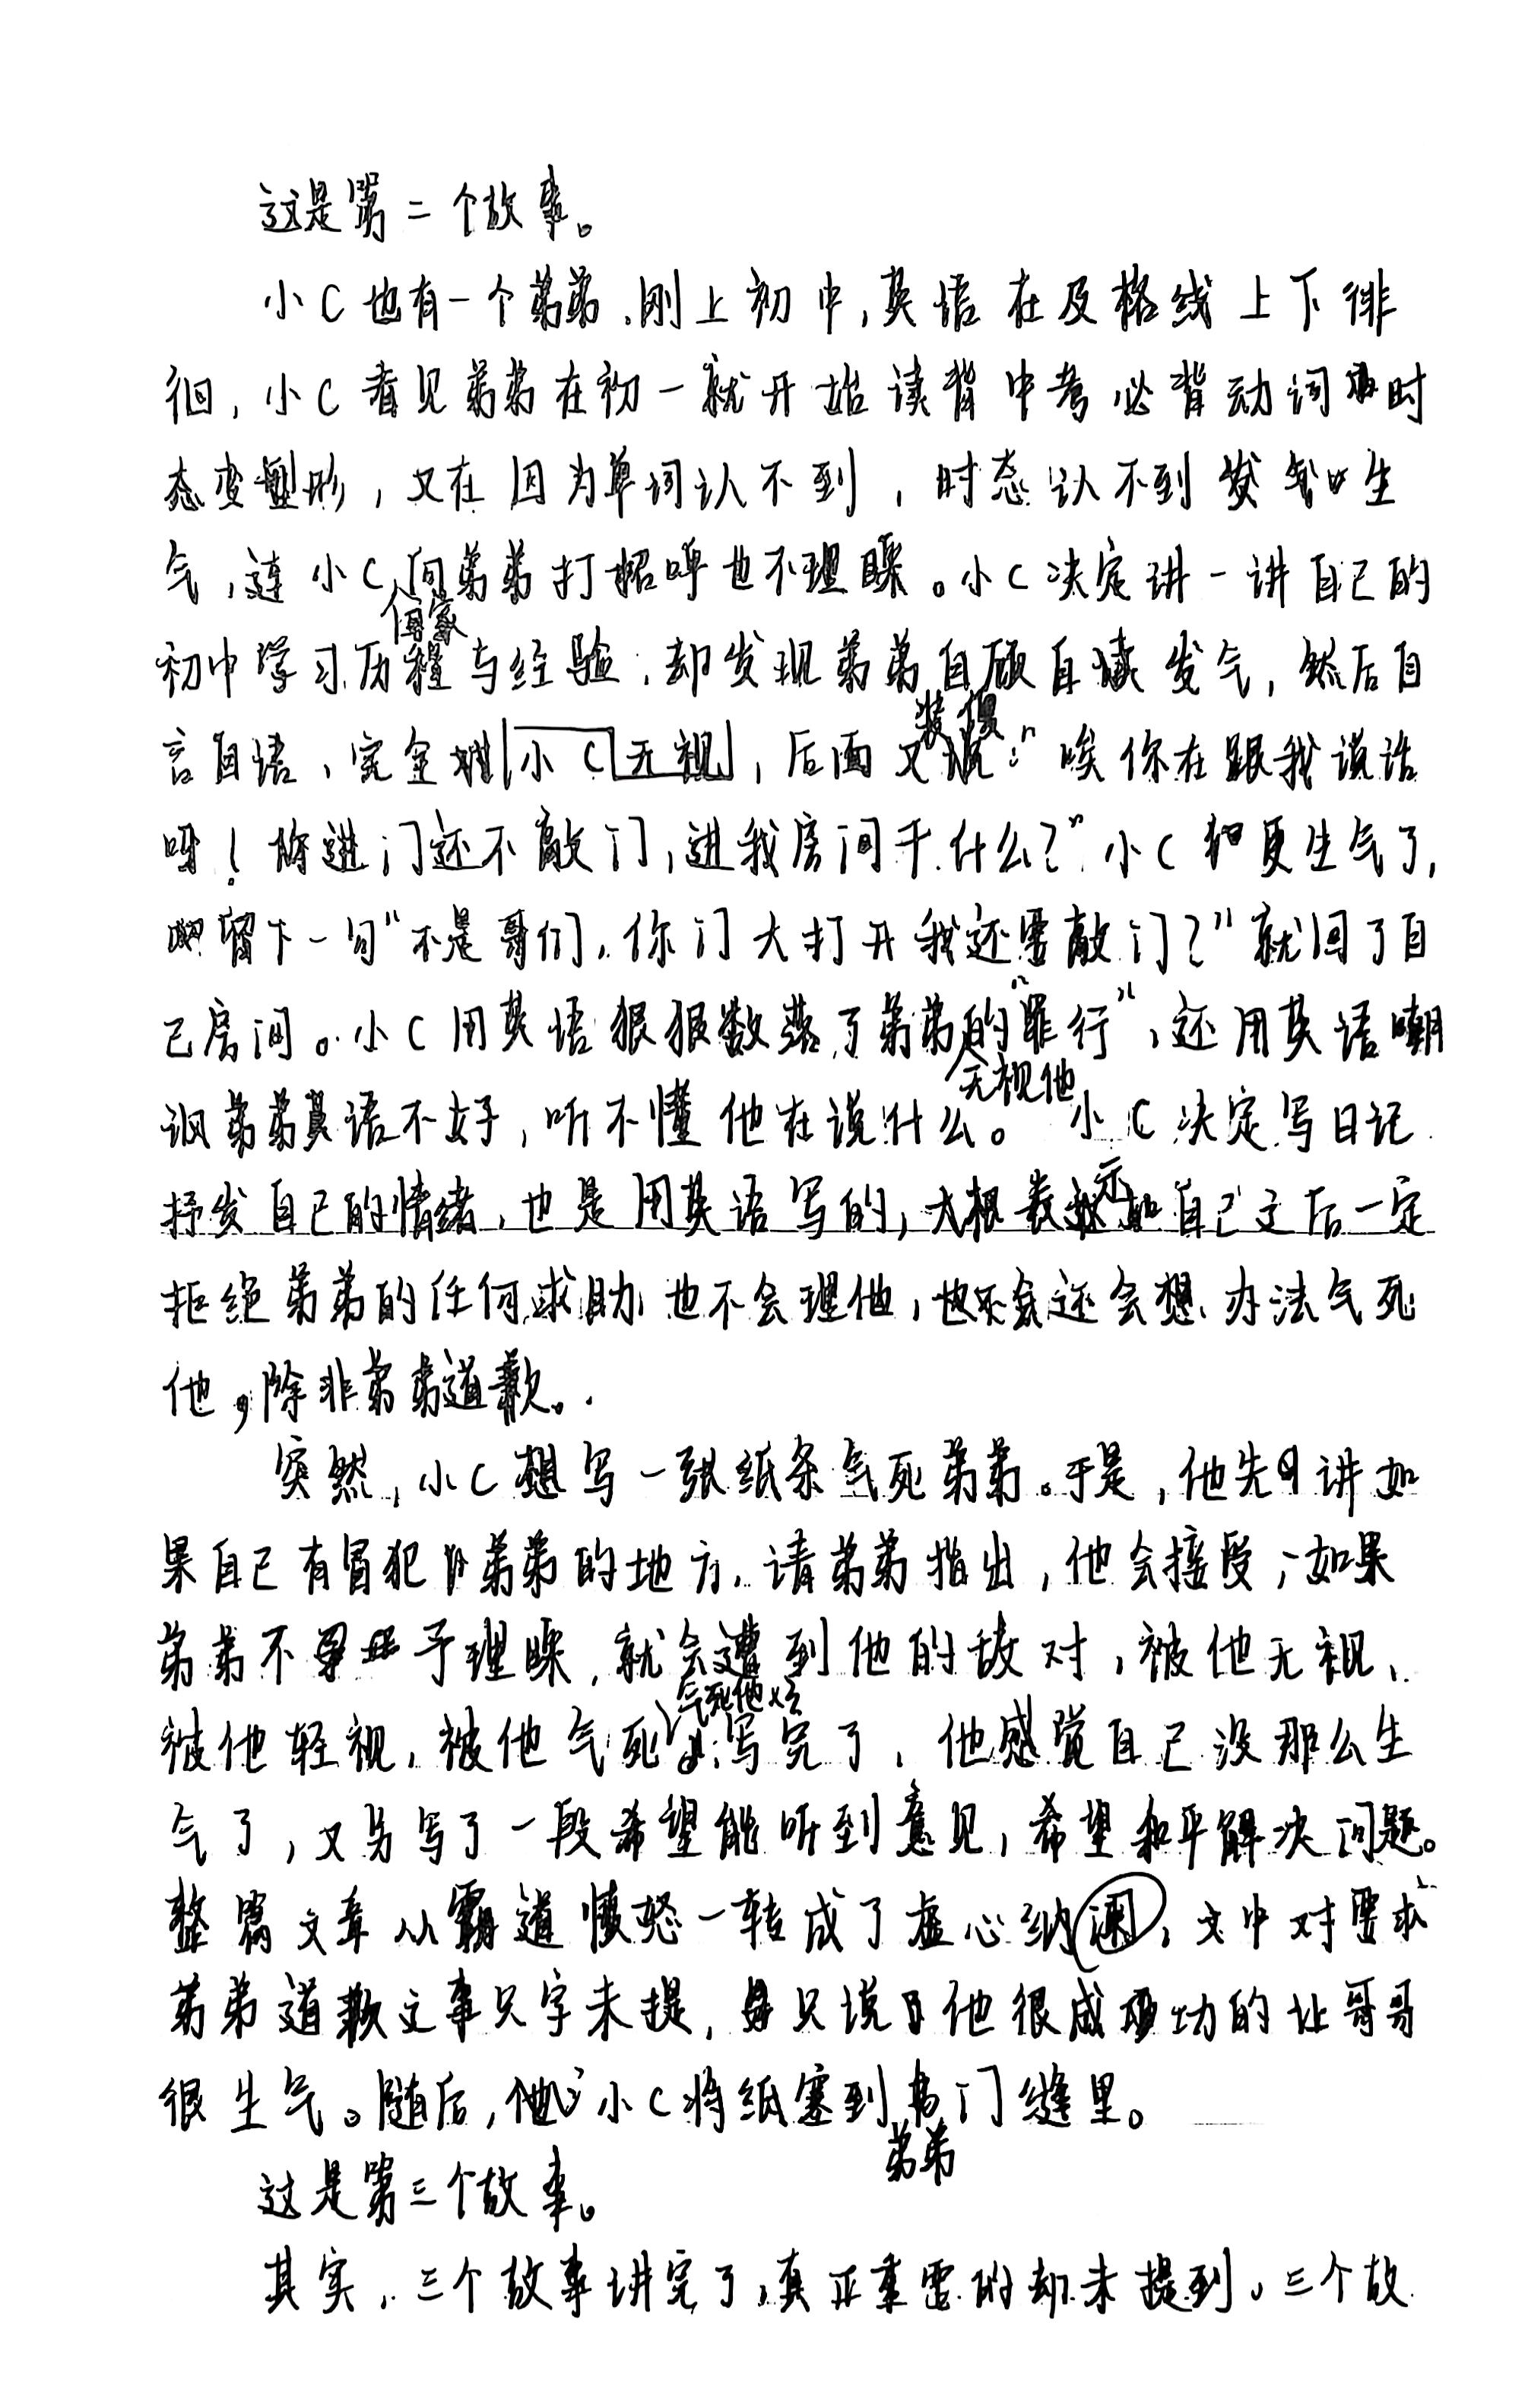 这是第二个故事。
小C也有一个弟弟,刚上初中,英语在及格线上下徘
徊,小C看见弟弟在初一就开始读背中考必背动词时
态变形,又在因为单词认不到,时态认不到生
气,连小C向弟弟打招呼也不理睬。小C决定讲一讲自己的
回家
初中学习历程与经验,却发现弟弟自顾自读发气,然后自
言自语,完全小C无视,后面又说:“唉你在跟我说话
装傻
呀!你进门还不敲门,进我房间干什么?”小C更生气了,
留下一句“不是哥们,你门大打开我还需敲门?”就回了自
己房间。小C用英语狠狠数落了弟弟的“罪行”,还用英语嘲
无视他
讽弟弟英语不好,听不懂他在说什么。小C决定写日记
抒发自己的情绪,也是用英语写的,大概表示自己之后一定
拒绝弟弟的任何求助,也不会理他,还会想办法气死
他,除非弟弟道歉。
突然,小C想写一张纸条气死弟弟。于是,他先讲如
果自己有冒犯弟弟的地方,请弟弟指出,他会接受;如果
弟弟不予理睬,就会遭到他的敌对,被他无视、
被他轻视,被他气死 写完了,他感觉自己没那么生
气死他
气了,又另写了一段希望能听到意见,希望和平解决问题。
整篇文章从霸道愤怒一转成了虚心纳谏,文中对要求
弟弟道歉之事只字未提,只说他很成功的让哥哥
很生气。随后,小C将纸塞到门缝里。
弟弟
这是第三个故事。
其实,三个故事讲完了,真正重要的却未提到。三个故